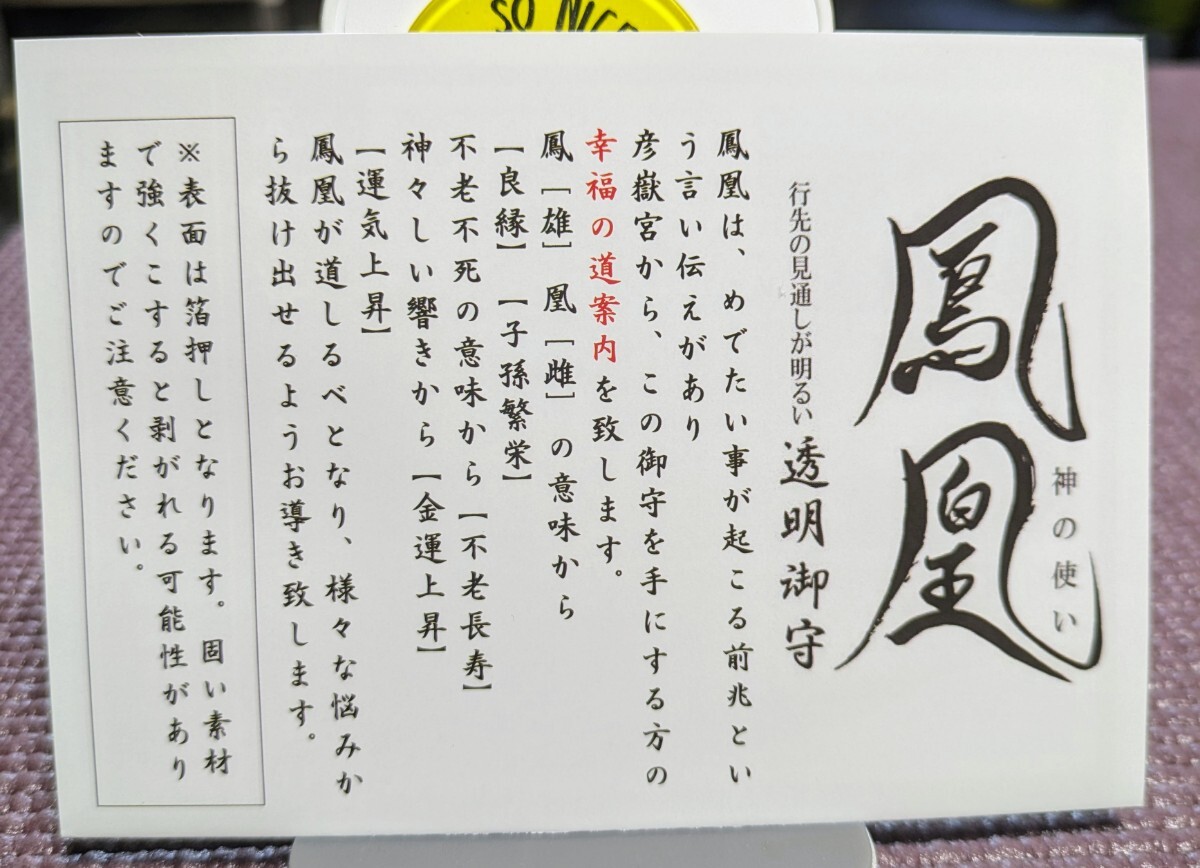 SO NICE
神の使い
鳳凰
行先の見通しが明るい 透明御守
鳳凰は、めでたい事が起こる前兆とい
う言い伝えがあり
彦嶽宮から、この御守を手にする方の
幸福の道案内を致します。
鳳［雄］凰［雌］の意味から
【良縁】【子孫繁栄】
不老不死の意味から【不老長寿】
神々しい響きから【金運上昇】
【運気上昇】
鳳凰が道しるべとなり、様々な悩みか
ら抜け出せるようお導き致します。
※表面は箔押しとなります。固い素材
で強くこすると剥がれる可能性があり
ますのでご注意ください。